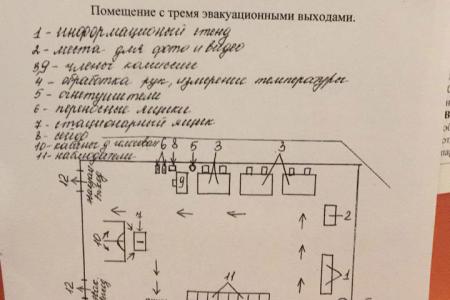 Помещение с тремя эвакуационными выходами.
1 - информационый стенд
2 - места для фото и видео
3,9 - члены комиссие
4 - обработка рук, измерение температуры
5 - огнетушители
6 - переносные ящики
7 - стационарный ящик
8 -
10 - кабины д
11 - наблюдатели
6 8 5 3 3
12
9
2
7
10
1
12
11